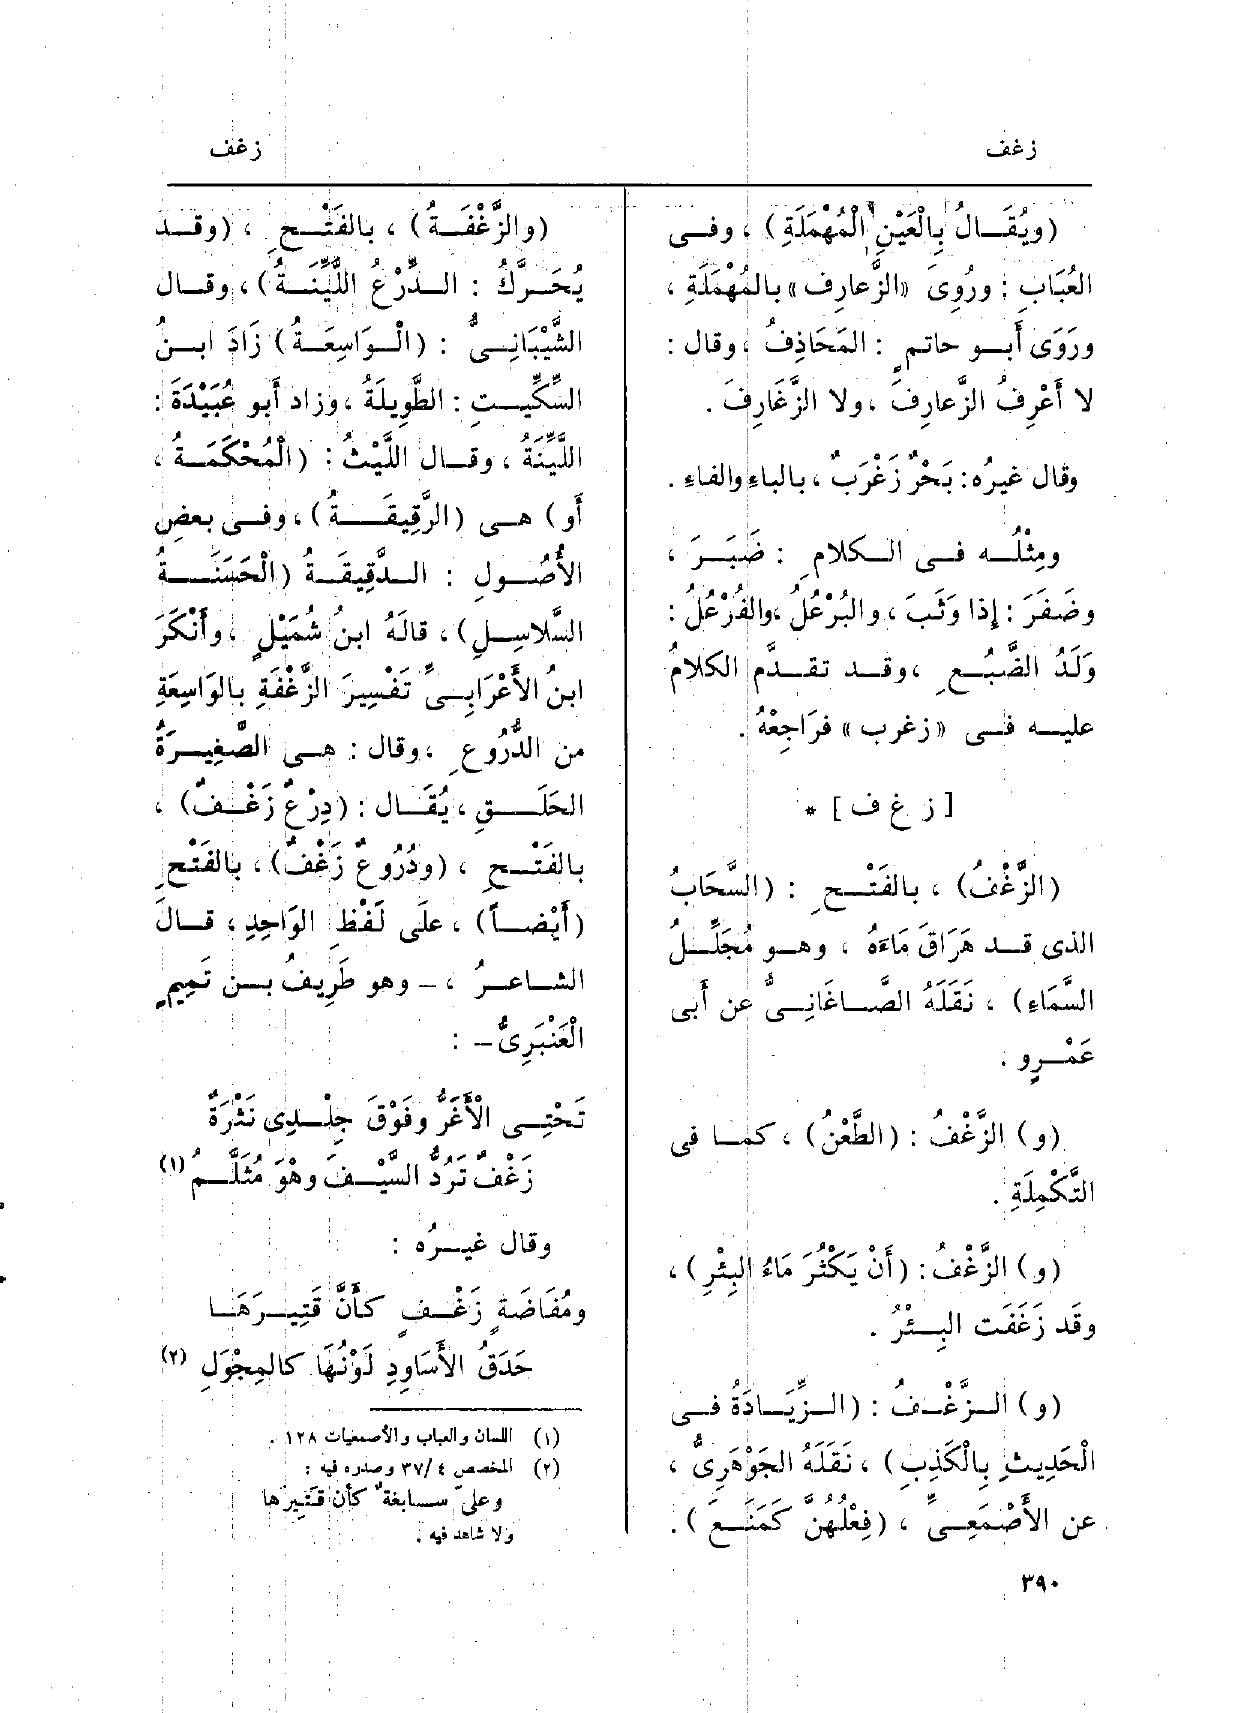 زغف
زغف
(ويُقَالُ بِالْعَيْنِ الْمُهْمَلَةِ) ، وفى
العُبَابِ : ورُوِىَ «الزَّعارِف» بالمُهْمَلَةِ ،
ورَوَى أَبو حاتمٍ : المَحَاذِفُ ، وقال :
لا أَعْرِفُ الزَّعارِفَ ، ولا الزَّغَارِفَ .
وقال غيرُه: بَحْرٌ زَغْرَبٌ ، بالباءِ والفاءِ .
ومِثْلُه فى الكلامِ : ضَبَرَ ،
وضَفَرَ : إِذا وَثَبَ ، والبُرْعُلُ ،والفُرْعُلُ :
وَلَدُ الضَّبُعِ ، وقد تقدَّم الكلامُ
عليه فى «زغرب» فَرَاجِعْهُ .
[ ز غ ف ] *
(الزَّغْفُ) ، بالفَتْحِ : (السَّحَابُ
الذى قد هَرَاقَ مَاءَهُ ، وهو مُجَلِّلُ
السَّمَاءِ) ، نَقَلَهُ الصَّاغَانِىُّ عن أَبى
عَمْرٍو .
(و) الزَّغْفُ : (الطَّعْنُ) ، كما فى
التَّكْمِلَةِ .
(و) الزَّغْفُ : (أَنْ يَكْثُرَ مَاءُ البِئْرِ) ،
وقَد زَغَفَت البِئْرُ .
(و) الزَّغْفُ : (الزِّيَادَةُ فى
الْحَدِيثِ بِالْكَذِبِ) ، نَقَلَهُ الجَوْهَرِىُّ ،
عن الأَصْمَعِىِّ ، (فِعْلُهُنَّ كَمَنَعَ) .
(والزَّغْفَةُ) ، بالفَتْحِ ، (وقد
يُحَرَّكُ : الدِّرْعُ اللَّيِّنَةُ) ، وقال
الشَّيْبَانِىُّ : (الْوَاسِعَةُ) زَادَ ابنُ
السِّكِّيتِ : الطَّوِيلَةُ ، وزاد أَبو عُبَيْدَةَ :
اللَّيِّنَةُ ، وقال اللَّيْثُ : (الْمُحْكَمَةُ ،
أَو) هى (الرَّقِيقَةُ) ، وفى بعضِ
الأُصُولِ : الدَّقِيقَةُ (الْحَسَنَةُ
السَّلاسِلِ) ، قالَهُ ابنُ شُمَيْلٍ ، وأَنْكَرَ
ابنُ الأَعْرَابِىِّ تَفْسِيرَ الزَّغْفَةِ بالوَاسِعَةِ
من الدُّرُوعِ ، وقال : هى الصَّغِيرَةُ
الحَلَقِ ، يُقَال : (دِرْعٌ زَغْفٌ) ،
بالفَتْحِ ، (ودُرُوعٌ زَغْفٌ) ، بالفَتْحِ
(أَيْضاً) ، علَى لَفْظِ الوَاحِدِ ، قالَ
الشاعرُ ، – وهو طَرِيفُ بن تَمِيمٍ
الْعَنْبَرِىُّ – :
تَحْتِى الْأَغَرُّ وفَوْقَ جِلْدِى نَثْرَةٌ
زَغْفٌ تَرُدُّ السَّيْفَ وهْوَ مُثَلَّمُ (١)
وقال غيرُه :
ومُفَاضَةٍ زَغْفٍ كأَنَّ قَتِيرَهَا
حَدَقُ الأَسَاوِدِ لَوْنُهَا كالمِجْوَلِ (٢)
(١) اللسان والعباب والأصمعيات ١٢٨ .
(٢) المخصص ٤ /٣٧ وصدره فيه :
وعلىّ سابغةٌ كأن قَتِيرَها
ولا شاهد فيه .
٣٩٠